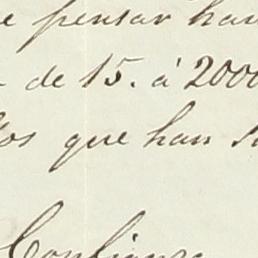 pensar han
de 15. á 2000
que han
Confianza